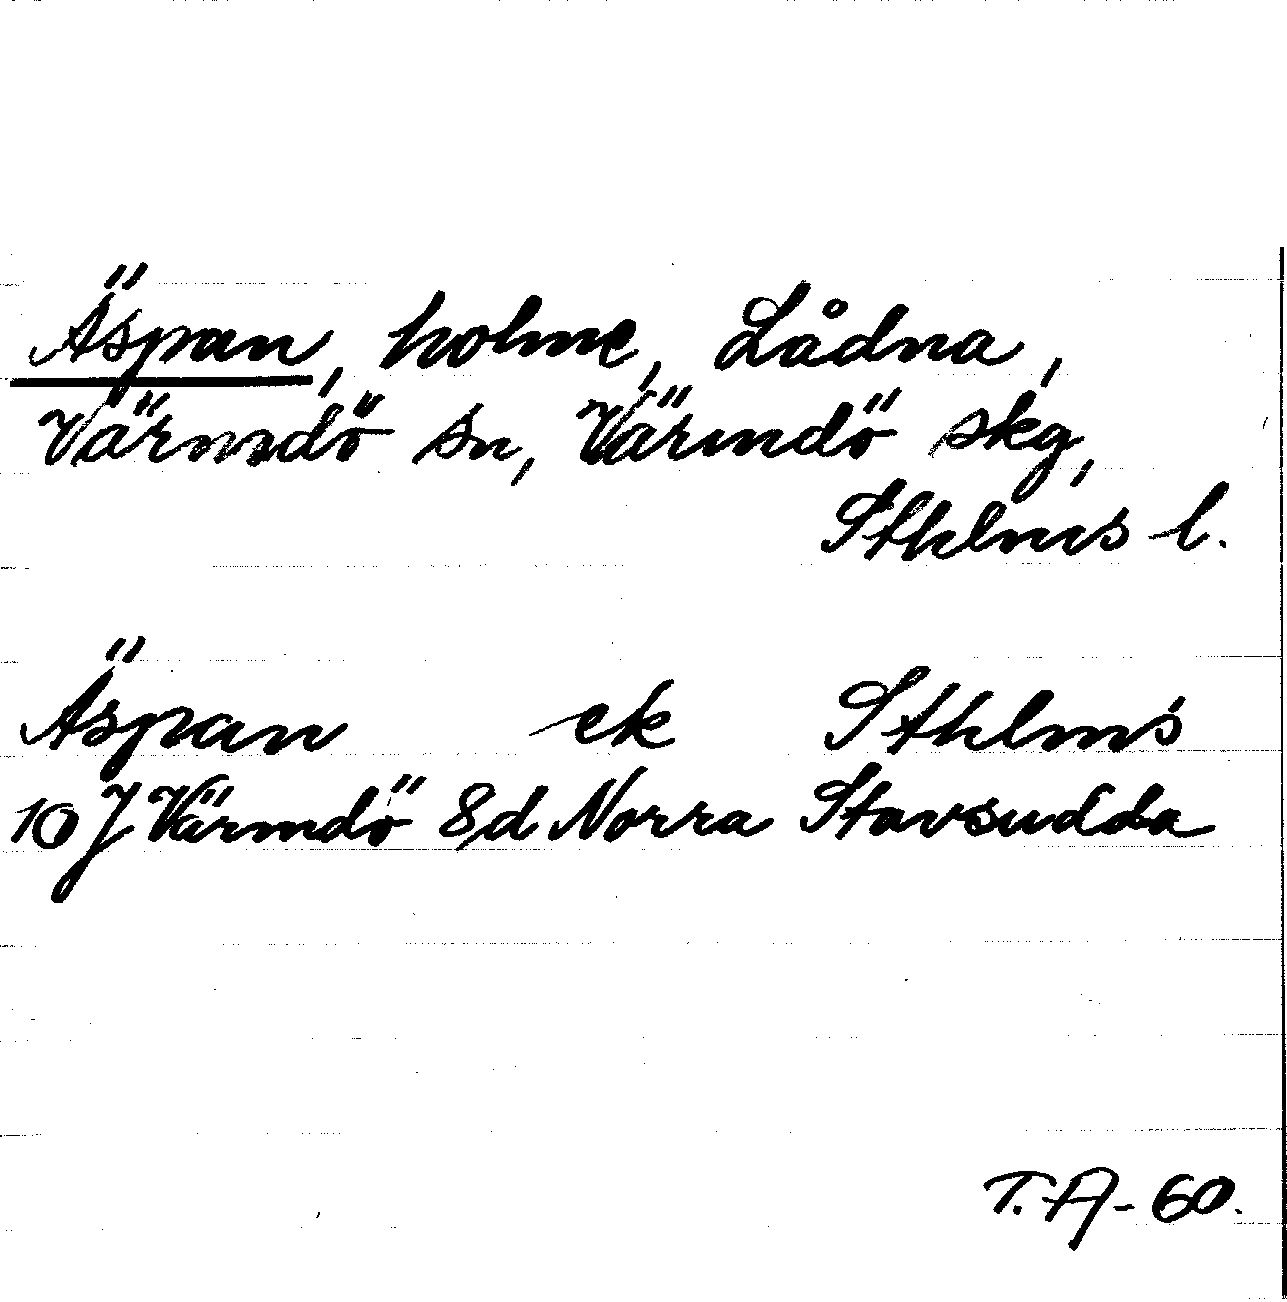 Äspan, holme, Lådna,
Värmdö sn, Värmdö skg,
Sthlms l.
Äspan ek Sthlms
10 J Värmdö 8d Norra Stavsudda
T.A-60.